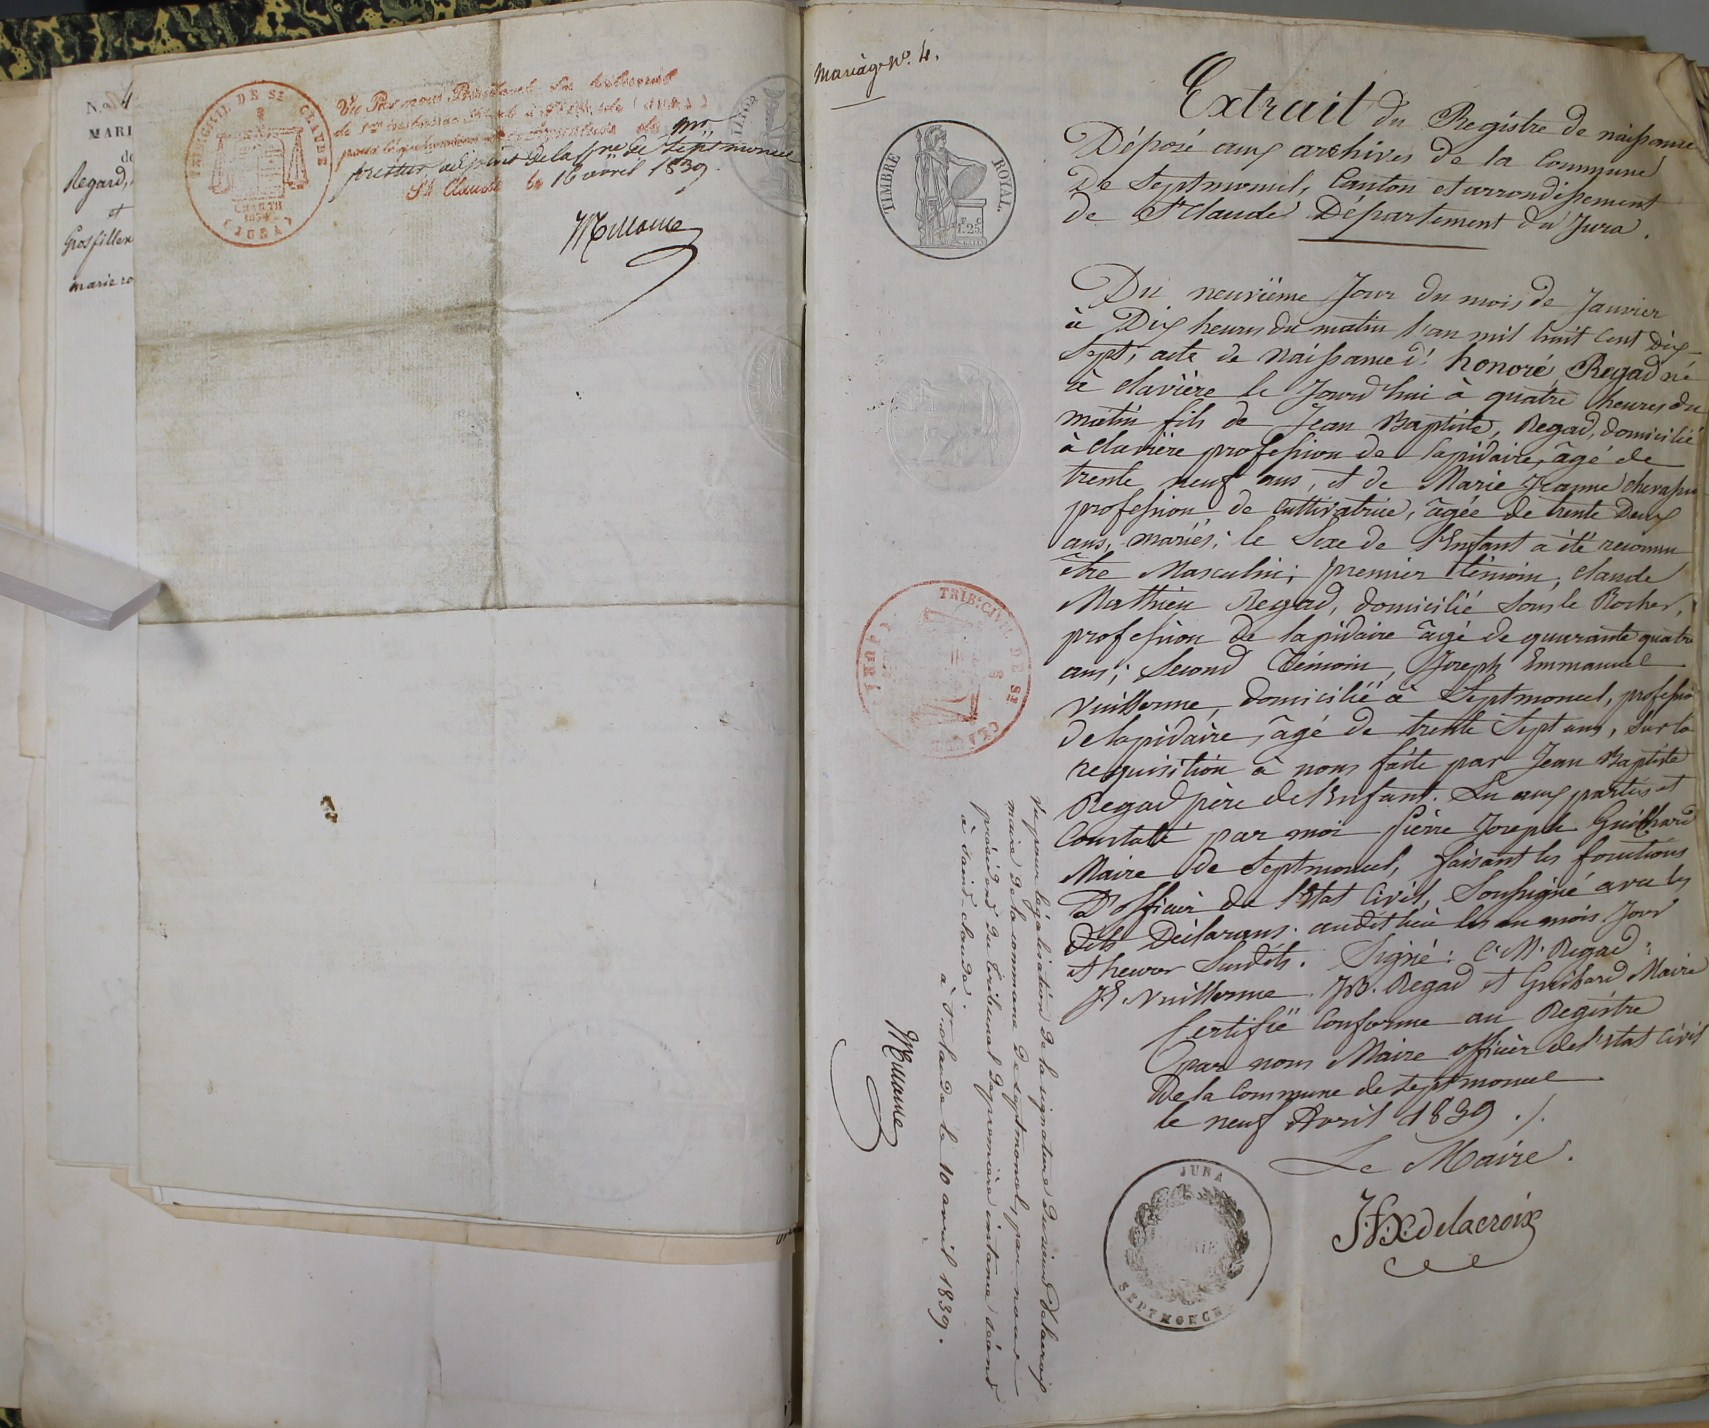 N.o 4
MARI
de
Regard,
et
Grosfillex
marie ro
TRIB. CIVIL DE St CLAUDE
CHARTE
1830
(JURA)
Vu Par nous Président du tribunal
de 1re instance séant à St Claude (JURA)
pour légalisation de la signature de Mr
adjoint de la Cne de Septmoncel
St Claude le 16 avril 1839.
Mariage No. 4.
TIMBRE ROYAL.
1.25
Extrait du Registre de naissance
Déposé aux archives de la Commune
de Septmoncel, Canton et arrondissement
de St Claude Département du Jura.
Du neuvième Jour du mois de Janvier
à Dix heures du matin l'an mil huit Cent Dix-
Sept, acte de Naissance d' honoré, Regad né
à Clavière le Jourd'hui à quatre heures du
matin fils de Jean Baptiste, Regad, domicilié
à Clavière profession de lapidaire, âgé de
trente neuf ans, et de Marie Jeanne
profession de Cultivatrice, âgée de trente Deux
ans, mariés; le Sexe de l'Enfant a été reconnu
être Masculin; premier témoin, Claude
Mathieu Regad, domicilié Sous le Rocher,
profession de lapidaire âgé de quarante quatre
ans; Second Témoin, Joseph Emmanuel
Vuillerme, domicilié à Septmoncel, profession
de lapidaire, âgé de trente Sept ans, Sur la
requisition à nous faite par Jean Baptiste
Regad père de l'Enfant. Lu aux parties et
Constaté par moi Pierre Joseph Guichard
Maire de Septmoncel, faisant les fonctions
D'officier de l'Etat Civil, Soussigné avec les
dits Déclarans. audit lieu les an mois Jour
et heures Susdits. Signé: C. M. Regad
J. E. Vuillerme. J. B. Regad et Guichard Maire
Certifié Conforme au Registre
par nous Maire officier de l'état Civil
De la Commune de Septmoncel
le neuf Avril 1839 ./.
Le Maire.
J.F.X. delacroix
JURA
MAIRIE
SEPTMONCEL
TRIB. CIVIL DE St CLAUDE
(JURA)
Vu pour légalisation de la signature du sieur Delacroix
maire de la commune de Septmoncel, par nous
président du tribunal de première instance séant
à saint-claude.
à St claude le 10 avril 1839.